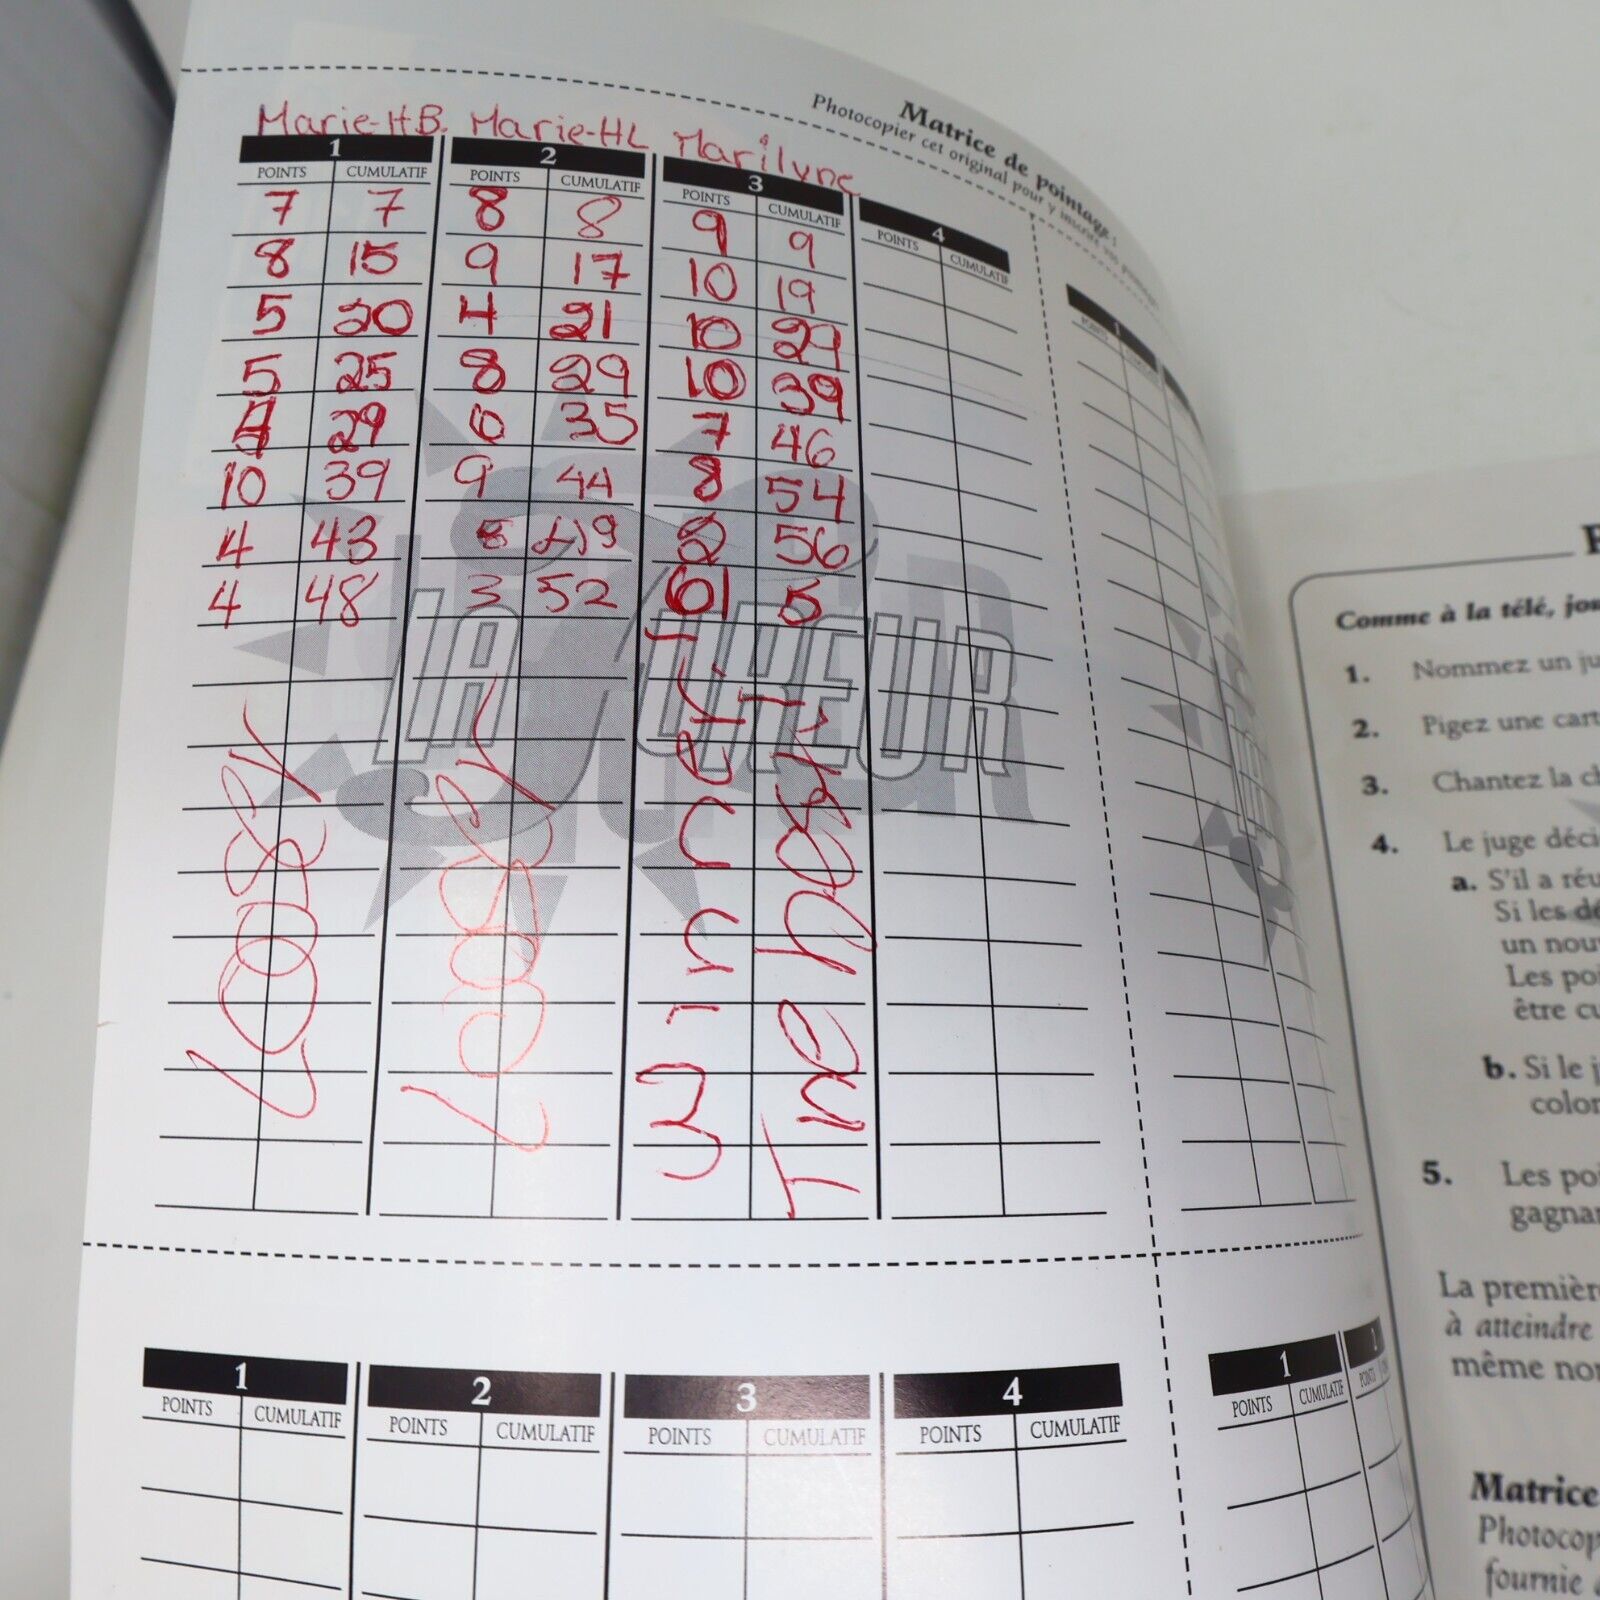 Matrice de pointage :
Photocopier cet original pour y inscrire vos pointages
Marie-HB. Marie-HL Marilyne
1 2 3 4
POINTS CUMULATIF POINTS CUMULATIF POINTS CUMULATIF POINTS CUMULATIF
7 7 8 8 9 9
8 15 9 17 10 19
5 20 4 21 10 29
5 25 8 29 10 39
4 29 6 35 7 46
10 39 9 44 8 54
4 43 5 49 2 56
4 48 3 52 61 5
LA FUREUR
Winner
The best
1 2 3 4
POINTS CUMULATIF POINTS CUMULATIF POINTS CUMULATIF POINTS CUMULATIF
1
POINTS CUMULATIF POINTS
Comme à la télé, jou
1. Nommez un ju
2. Pigez une cart
3. Chantez la ch
4. Le juge déci
a. S'il a réu
Si les dé
un nouv
Les poi
être cu
b. Si le j
color
5. Les poi
gagnan
La premièr
à atteindre
même nom
Matrice
Photocop
fournie